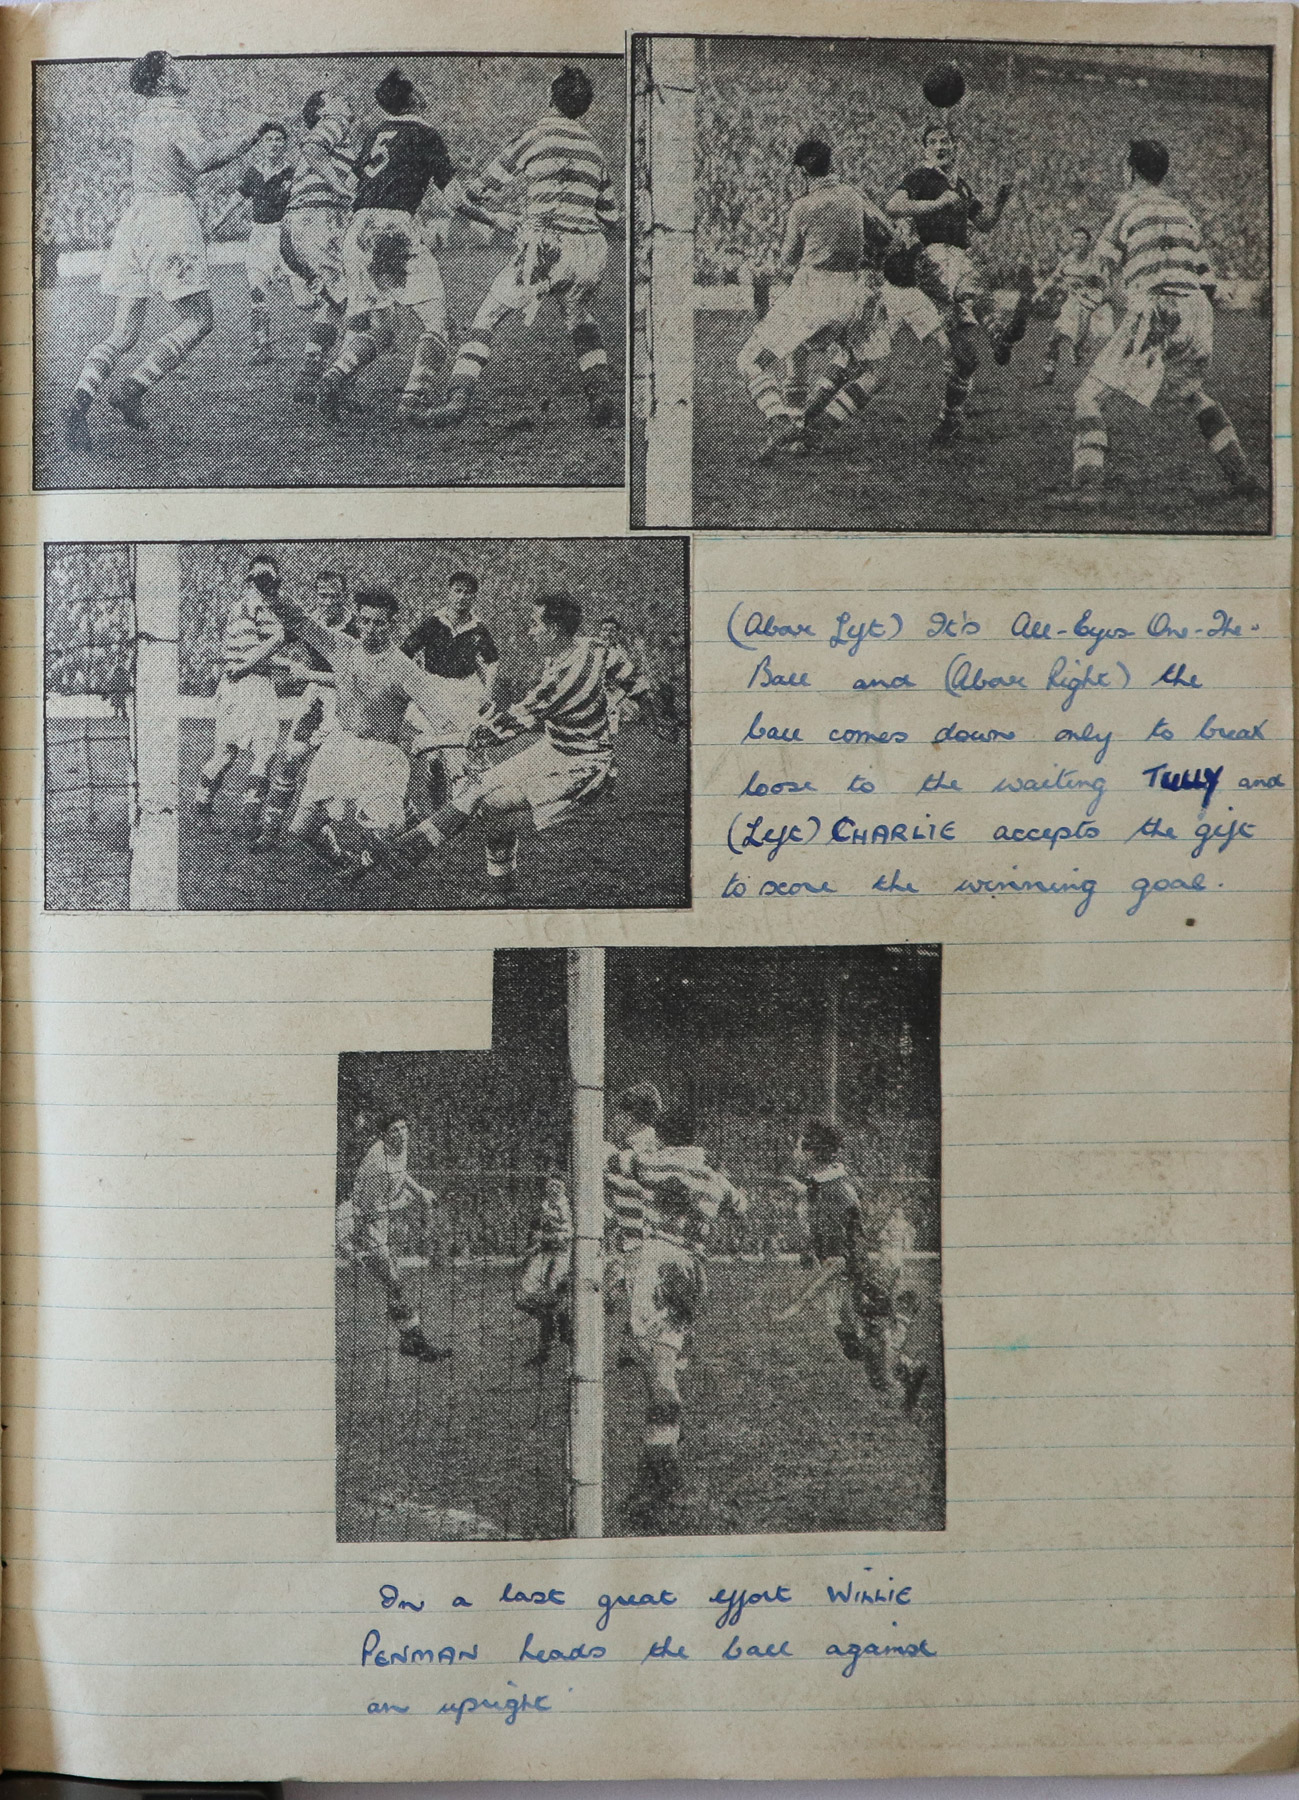 5
(Above Left) It's All-Eyes-One-The-
Ball and (Above Right) the
ball comes down only to break
loose to the waiting TULLY and
(Left) CHARLIE accepts the gift
to score the winning goal.
In a last great effort WILLIE
PENMAN heads the ball against
an upright